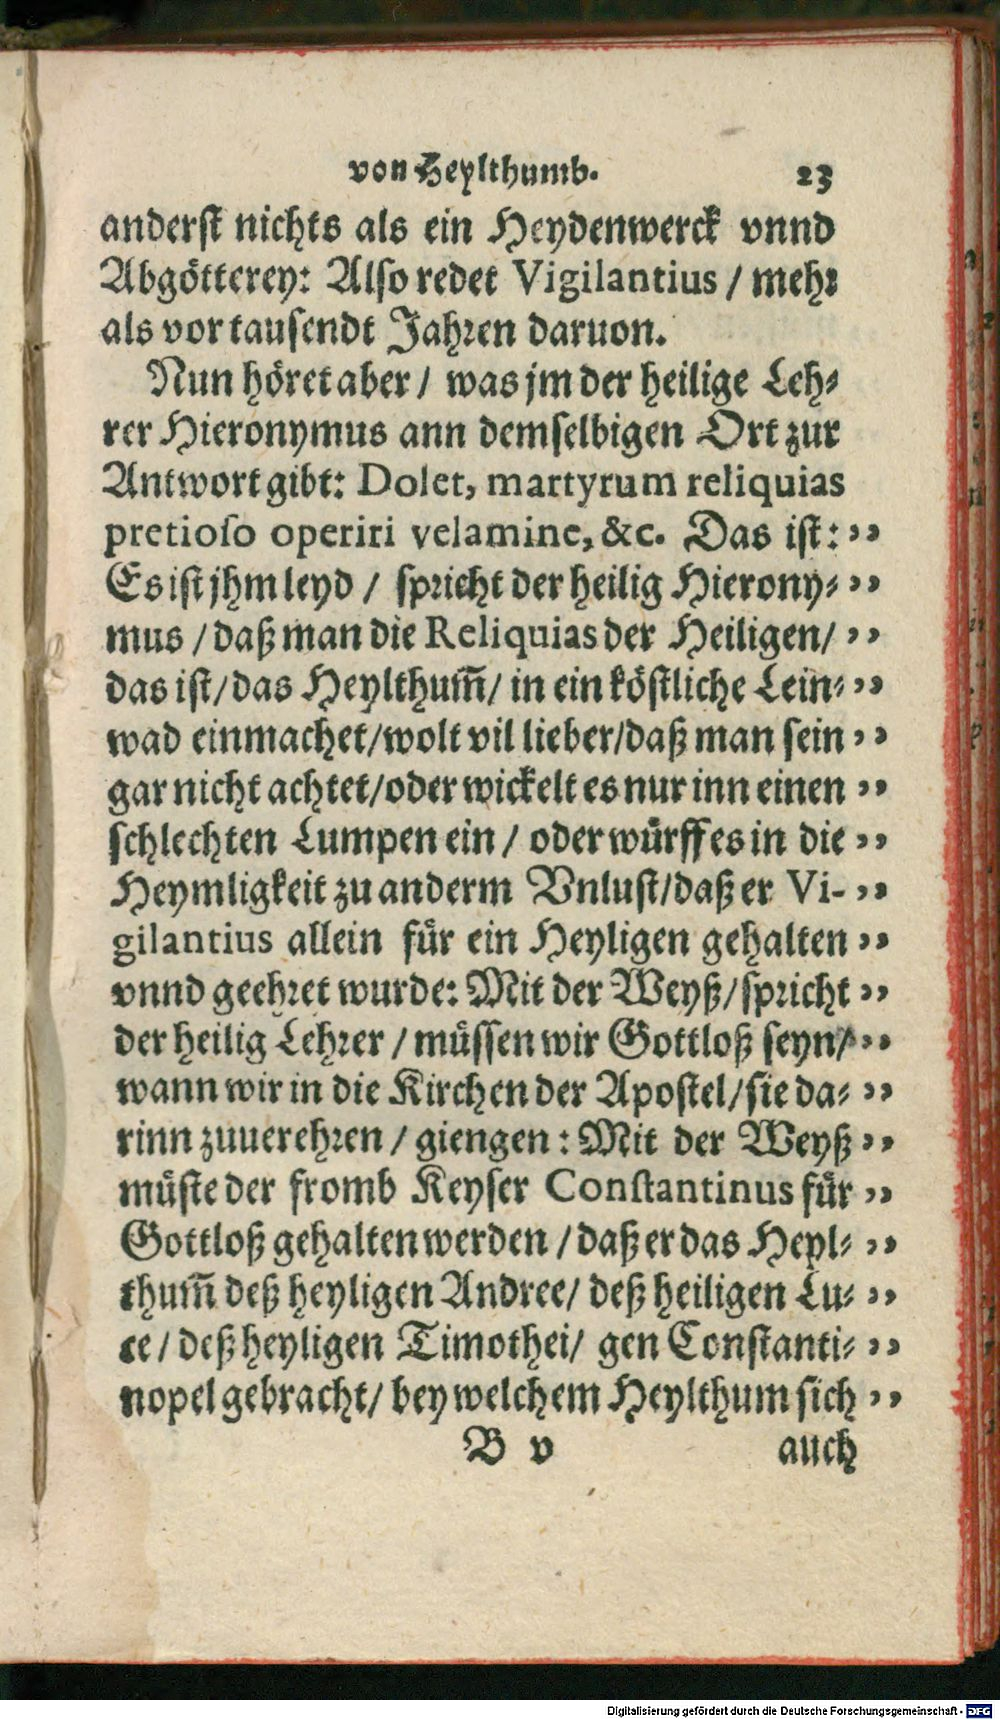 von Heylthumb. 23
anderst nichts als ein Heydenwerck vnnd
Abgötterey: Also redet Vigilantius / mehr
als vor tausendt Jahren daruon.
Nun höret aber / was jm der heilige Leh-
rer Hieronymus ann demselbigen Ort zur
Antwort gibt: Dolet, martyrum reliquias
pretioso operiri velamine, &c. Das ist: ,,
Es ist jhm leyd / spricht der heilig Hierony- ,,
mus / daß man die Reliquias der Heiligen / ,,
das ist / das Heylthum̃ / in ein köstliche Lein- ,,
wad einmachet / wolt vil lieber / daß man sein ,,
gar nicht achtet / oder wickelt es nur inn einen ,,
schlechten Lumpen ein / oder würff es in die ,,
Heymligkeit zu anderm Vnlust / daß er Vi- ,,
gilantius allein für ein Heyligen gehalten ,,
vnnd geehret wurde: Mit der Weyß / spricht ,,
der heilig Lehrer / müssen wir Gottloß seyn / ,,
wann wir in die Kirchen der Apostel / sie da- ,,
rinn zuuerehren / giengen: Mit der Weyß ,,
müste der fromb Keyser Constantinus für ,,
Gottloß gehalten werden / daß er das Heyl- ,,
thum̃ deß heyligen Andree / deß heiligen Lu- ,,
ce / deß heyligen Timothei / gen Constanti- ,,
nopel gebracht / bey welchem Heylthum sich ,,
B v auch
Digitalisierung gefördert durch die Deutsche Forschungsgemeinschaft - DFG